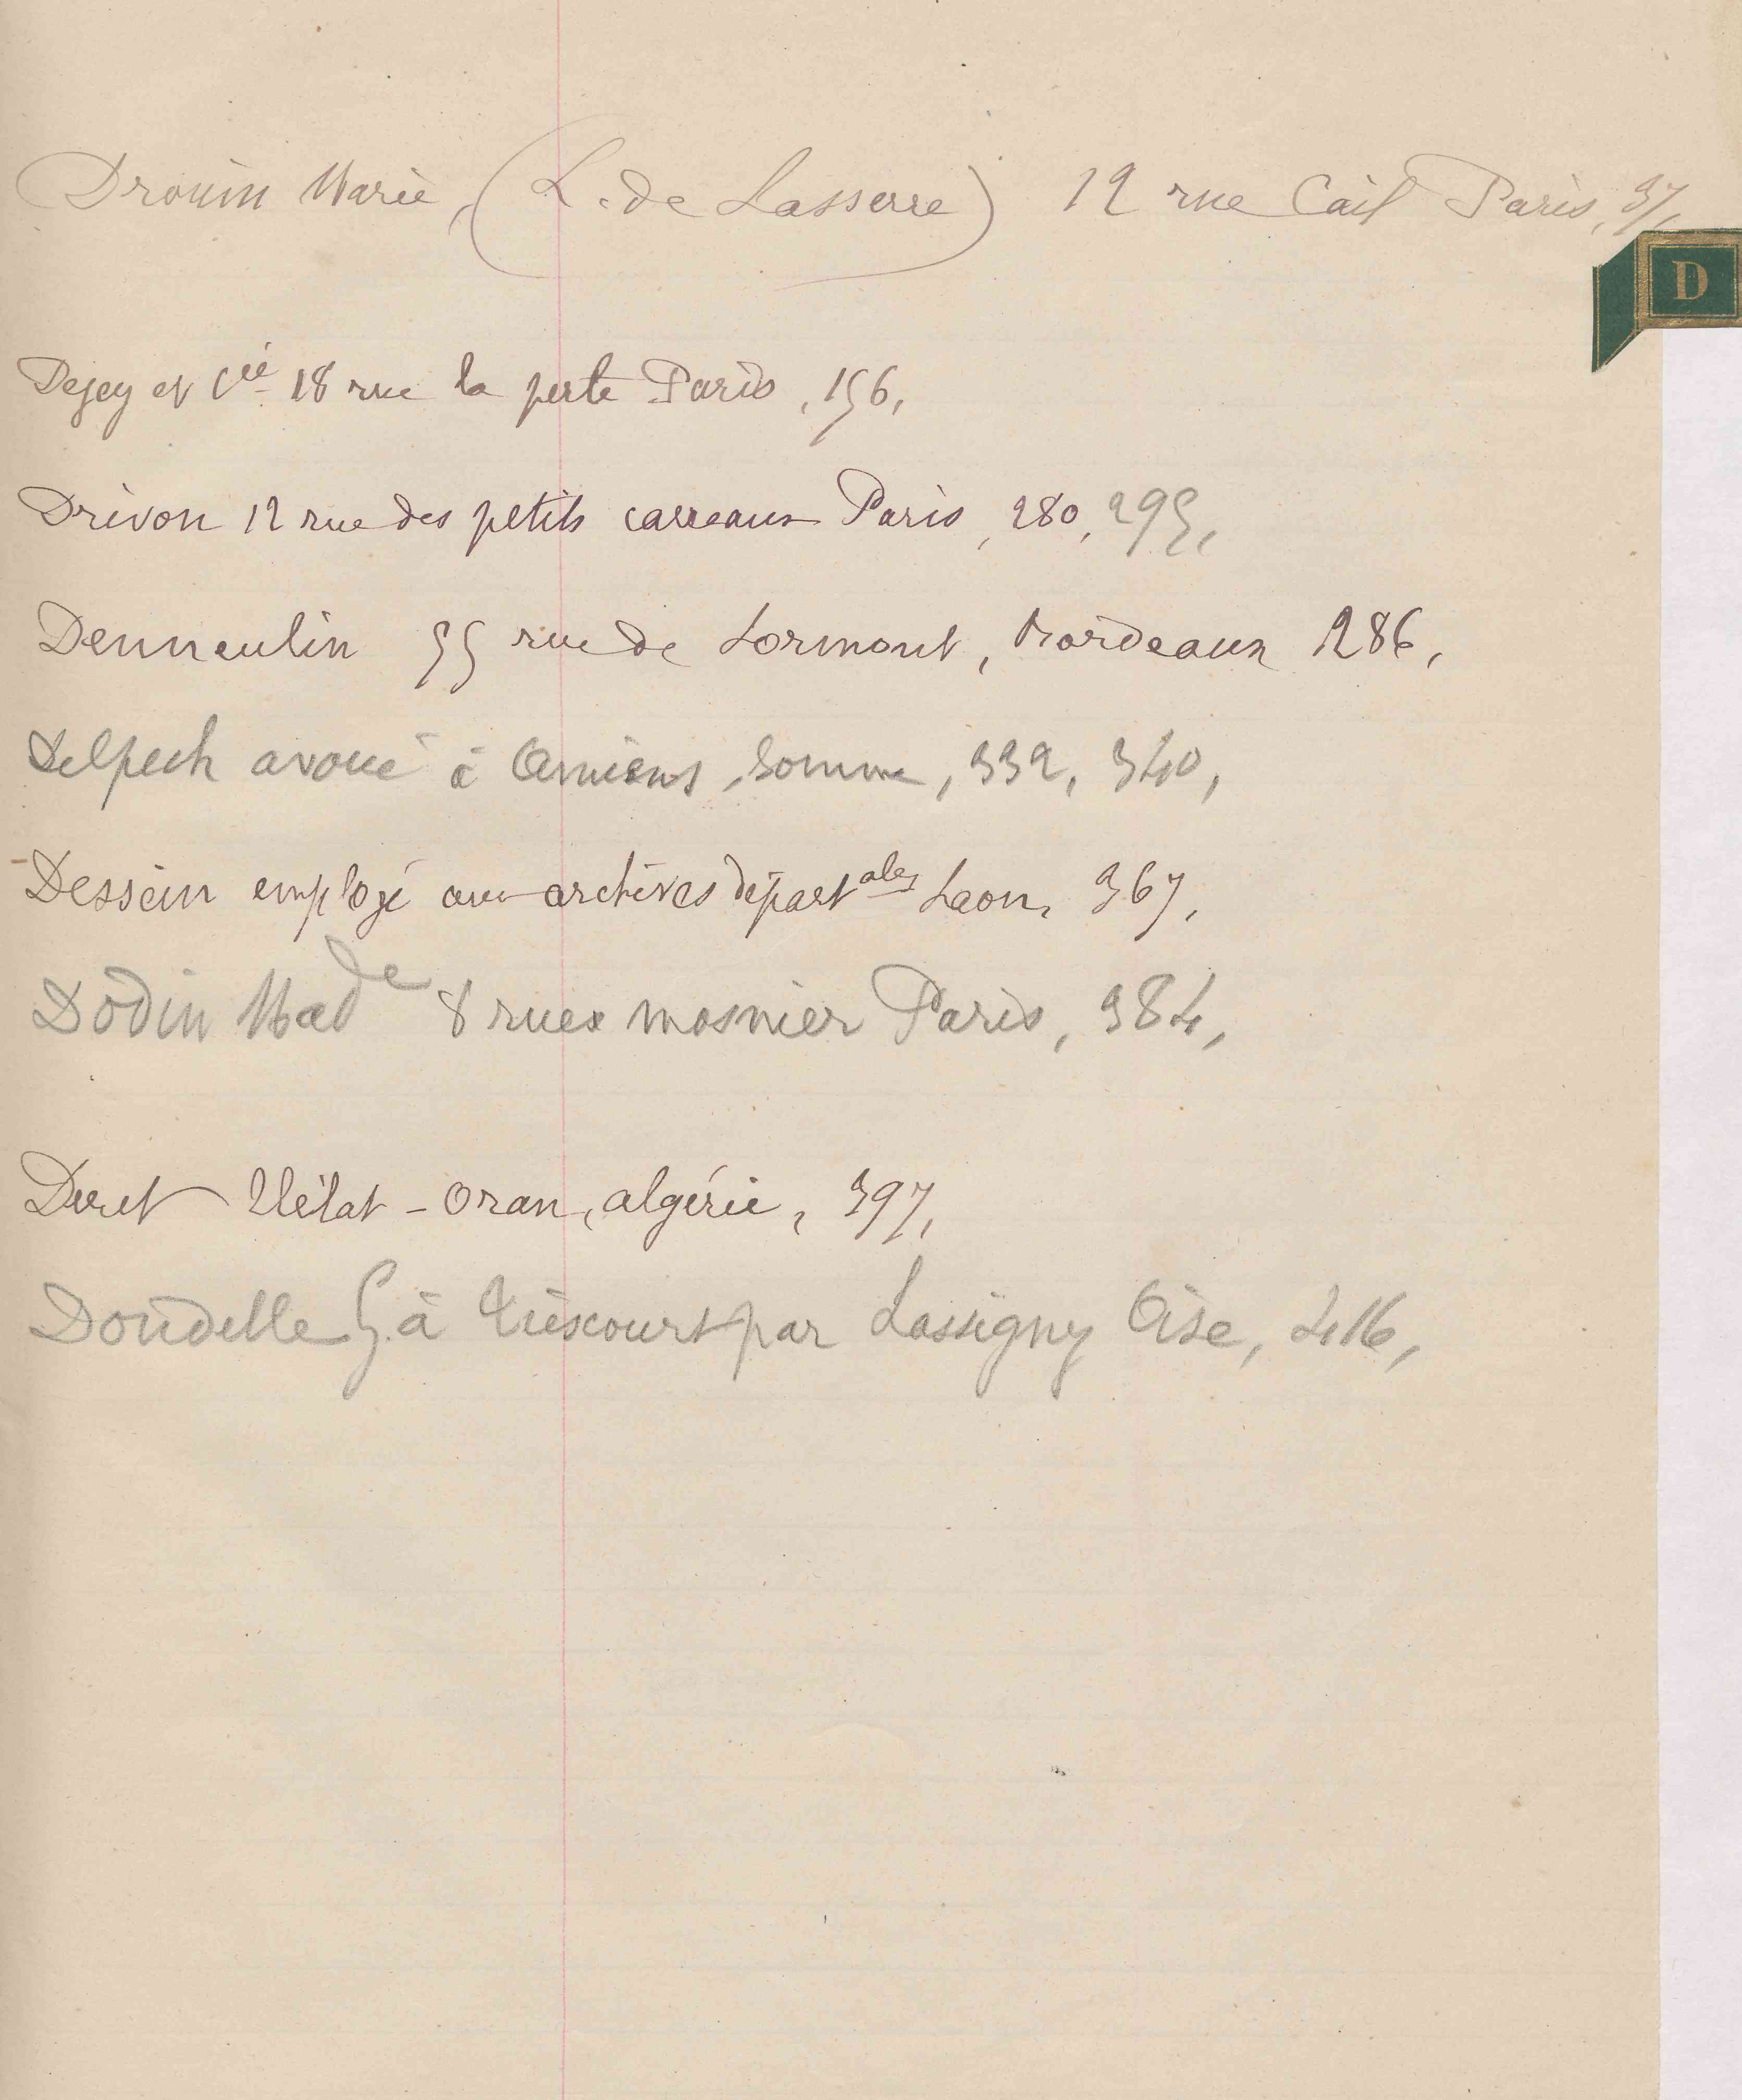 Drouin Marie, (L. de Lasserre) 12 rue Cail Paris, 37,
D
Dejey et Cie 18 rue la perle Paris, 156,
Drivon 12 rue des petits carreaux Paris, 280, 295,
Denneulin 55 rue de Lormont, Bordeaux 286,
Delpech avoué à Amiens, Somme, 332, 340,
Dessein employé aux archives départales Laon, 367,
Dodin Made 8 rue mosnier Paris, 384,
Duret Tlélat - Oran, algérie, 397,
Doudelle G. à Thiescourt par Lassigny Oise, 416,